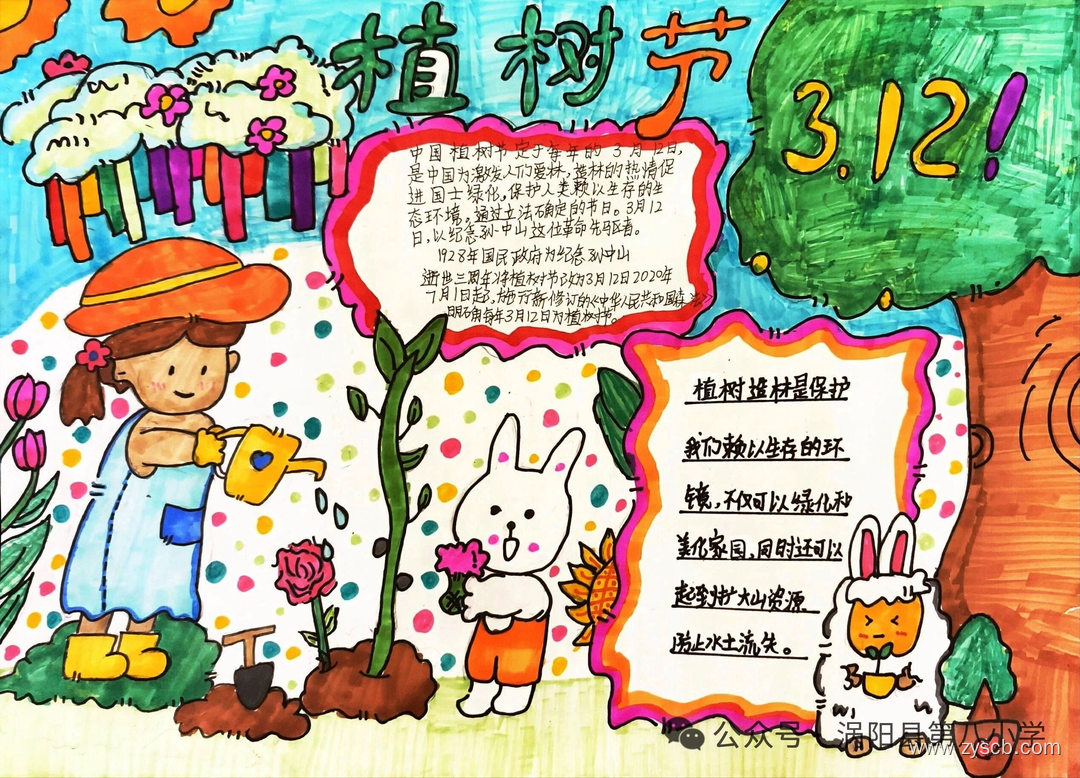 植树节
3.12!
中国植树节定于每年的3月12日,
是中国为激发人们爱林,造林的热情促
进国土绿化,保护人类赖以生存的生
态环境,通过立法确定的节日。3月12
日,以纪念孙中山这位革命先驱者。
1928年国民政府为纪念孙中山
逝世三周年将植树节改为3月12日2020年
7月1日起,施行新修订的《中华人民共和国森法》
明确每年3月12日为植树节。
植树造林是保护
我们赖以生存的环
镜,不仅可以绿化和
美化家园,同时还可以
起到扩大山资源
防止水土流失。
公众号 涡阳县第八小学
www.zyscb.com